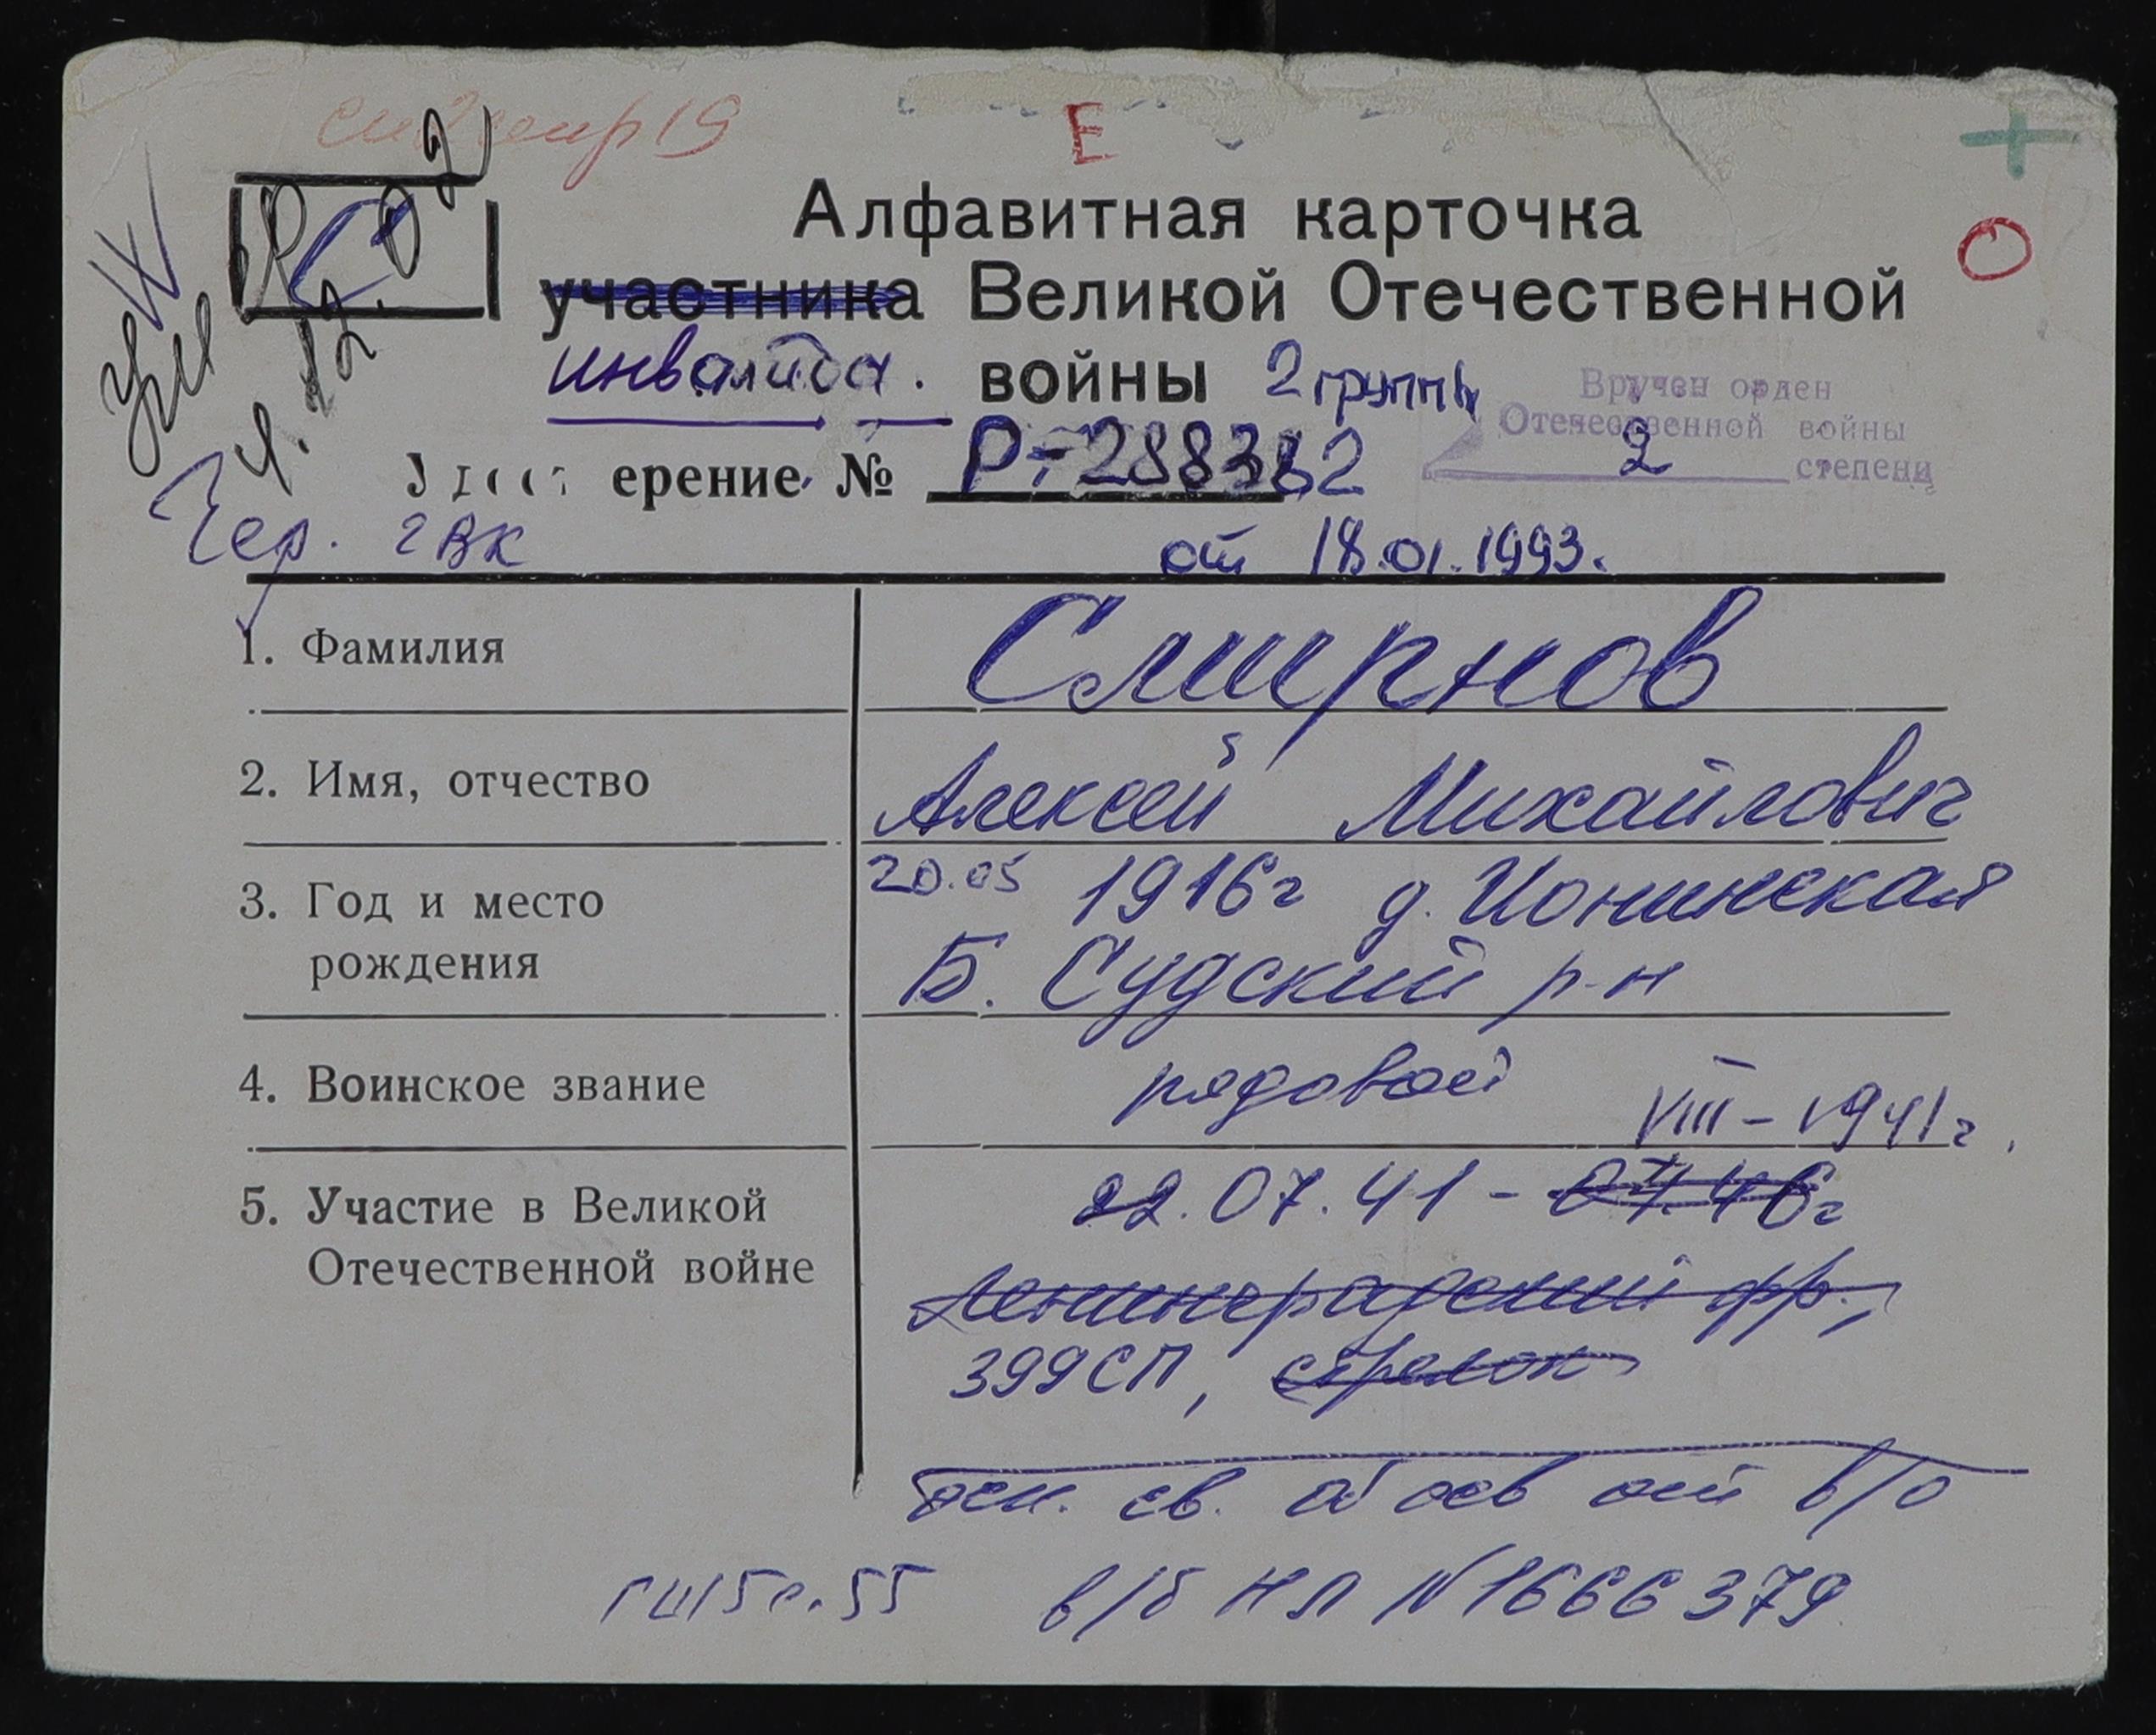 Е
Алфавитная карточка
участника Великой Отечественной
инвалида. войны 2 группы
Вручен орден
Отечественной войны
2 степени
ерение № Р-288382
Чер. гвк
от 18.01.1993.
1. Фамилия Смирнов
2. Имя, отчество Алексей Михайлович
3. Год и место 20.05 1916г д. Ионинская
рождения Б. Судский р-н
4. Воинское звание рядовой
VIII – 1941г.
5. Участие в Великой 22.07.41 – 07.46г
Отечественной войне Ленинградский фр.,
399 СП, стрелок
осн. св. об осв от в/о
в/б НЛ № 1666379